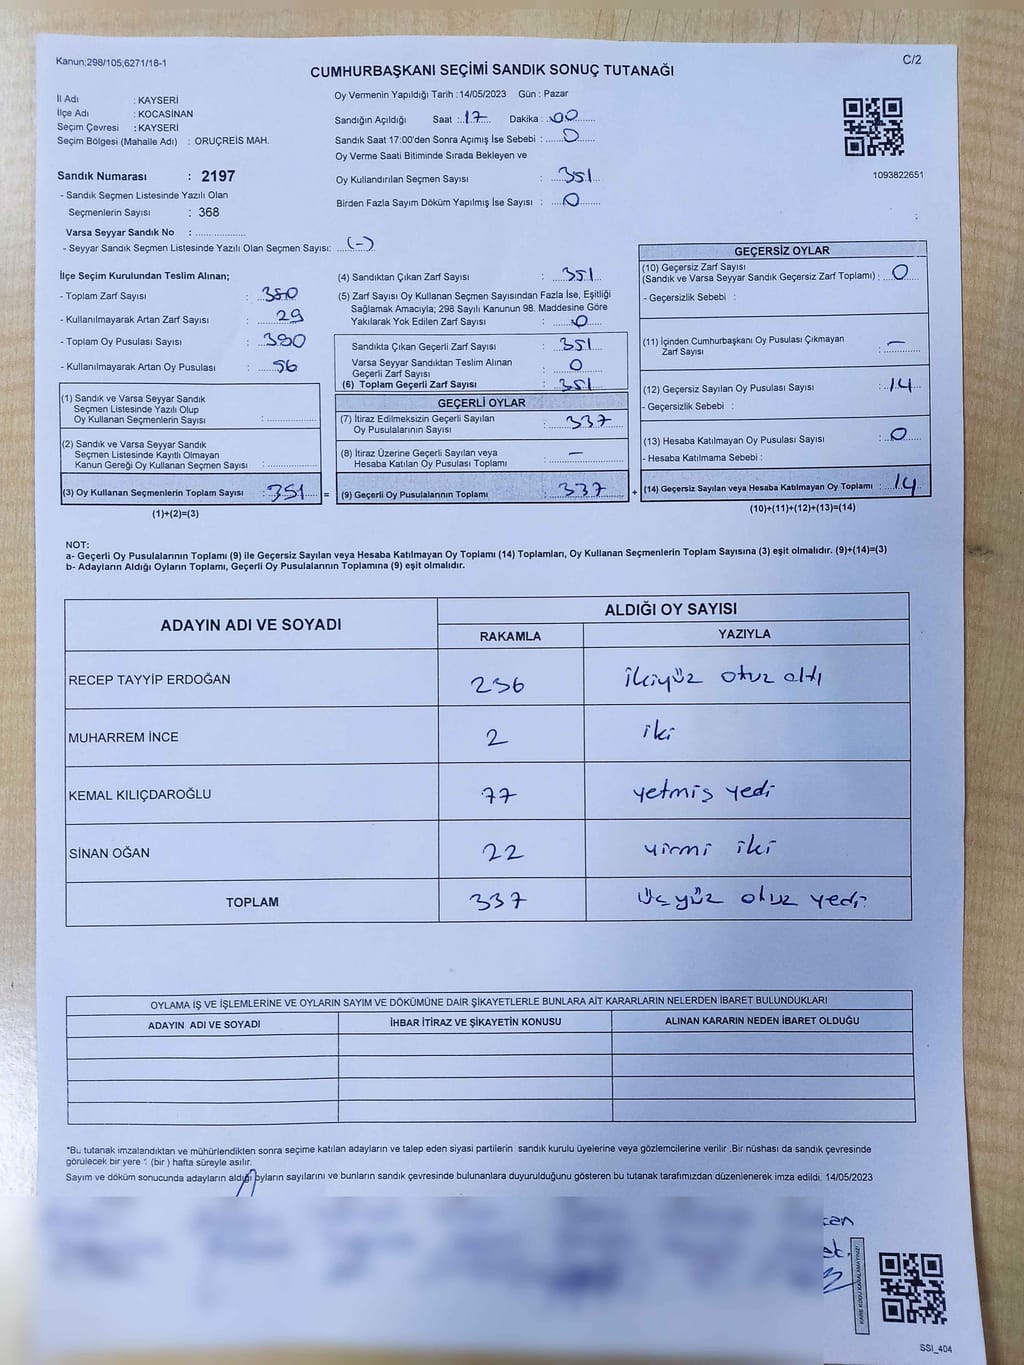 Kanun;298/105;6271/18-1
C/2
CUMHURBAŞKANI SEÇİMİ SANDIK SONUÇ TUTANAĞI
İl Adı : KAYSERİ
İlçe Adı : KOCASİNAN
Seçim Çevresi : KAYSERİ
Seçim Bölgesi (Mahalle Adı) : ORUÇREİS MAH.
Sandık Numarası : 2197
- Sandık Seçmen Listesinde Yazılı Olan
Seçmenlerin Sayısı : 368
Varsa Seyyar Sandık No :
- Seyyar Sandık Seçmen Listesinde Yazılı Olan Seçmen Sayısı: (-)
Oy Vermenin Yapıldığı Tarih :14/05/2023 Gün : Pazar
Sandığın Açıldığı Saat : 17 Dakika : 00
Sandık Saat 17:00'den Sonra Açımış İse Sebebi : 0
Oy Verme Saati Bitiminde Sırada Bekleyen ve
Oy Kullandırılan Seçmen Sayısı : 351
Birden Fazla Sayım Döküm Yapılmış İse Sayısı : 0
1093822651
İlçe Seçim Kurulundan Teslim Alınan;
- Toplam Zarf Sayısı : 380
- Kullanılmayarak Artan Zarf Sayısı : 29
- Toplam Oy Pusulası Sayısı : 390
- Kullanılmayarak Artan Oy Pusulası : 56
(1) Sandık ve Varsa Seyyar Sandık
Seçmen Listesinde Yazılı Olup
Oy Kullanan Seçmenlerin Sayısı :
(2) Sandık ve Varsa Seyyar Sandık
Seçmen Listesinde Kayıtlı Olmayan
Kanun Gereği Oy Kullanan Seçmen Sayısı :
(3) Oy Kullanan Seçmenlerin Toplam Sayısı : 351 =
(1)+(2)=(3)
(4) Sandıktan Çıkan Zarf Sayısı : 351
(5) Zarf Sayısı Oy Kullanan Seçmen Sayısından Fazla İse, Eşitliği
Sağlamak Amacıyla; 298 Sayılı Kanunun 98. Maddesine Göre
Yakılarak Yok Edilen Zarf Sayısı : 0
Sandıkta Çıkan Geçerli Zarf Sayısı : 351
Varsa Seyyar Sandıktan Teslim Alınan
Geçerli Zarf Sayısı : 0
(6) Toplam Geçerli Zarf Sayısı : 351
GEÇERLİ OYLAR
(7) İtiraz Edilmeksizin Geçerli Sayılan
Oy Pusulalarının Sayısı : 337
(8) İtiraz Üzerine Geçerli Sayılan veya
Hesaba Katılan Oy Pusulası Toplamı : —
(9) Geçerli Oy Pusulalarının Toplamı : 337 +
GEÇERSİZ OYLAR
(10) Geçersiz Zarf Sayısı
(Sandık ve Varsa Seyyar Sandık Geçersiz Zarf Toplamı) : 0
- Geçersizlik Sebebi :
(11) İçinden Cumhurbaşkanı Oy Pusulası Çıkmayan
Zarf Sayısı : —
(12) Geçersiz Sayılan Oy Pusulası Sayısı : 14
- Geçersizlik Sebebi :
(13) Hesaba Katılmayan Oy Pusulası Sayısı : 0
- Hesaba Katılmama Sebebi :
(14) Geçersiz Sayılan veya Hesaba Katılmayan Oy Toplamı : 14
(10)+(11)+(12)+(13)=(14)
NOT:
a- Geçerli Oy Pusulalarının Toplamı (9) ile Geçersiz Sayılan veya Hesaba Katılmayan Oy Toplamı (14) Toplamları, Oy Kullanan Seçmenlerin Toplam Sayısına (3) eşit olmalıdır. (9)+(14)=(3)
b- Adayların Aldığı Oyların Toplamı, Geçerli Oy Pusulalarının Toplamına (9) eşit olmalıdır.
ADAYIN ADI VE SOYADI ALDIĞI OY SAYISI
RAKAMLA YAZIYLA
RECEP TAYYİP ERDOĞAN 236 ikiyüz otuz altı
MUHARREM İNCE 2 iki
KEMAL KILIÇDAROĞLU 77 yetmiş yedi
SİNAN OĞAN 22 yirmi iki
TOPLAM 337 üçyüz otuz yedi
OYLAMA İŞ VE İŞLEMLERİNE VE OYLARIN SAYIM VE DÖKÜMÜNE DAİR ŞİKAYETLERLE BUNLARA AİT KARARLARIN NELERDEN İBARET BULUNDUKLARI
ADAYIN ADI VE SOYADI İHBAR İTİRAZ VE ŞİKAYETİN KONUSU ALINAN KARARIN NEDEN İBARET OLDUĞU
*Bu tutanak imzalandıktan ve mühürlendikten sonra seçime katılan adayların ve talep eden siyasi partilerin sandık kurulu üyelerine veya gözlemcilerine verilir .Bir nüshası da sandık çevresinde
görülecek bir yere 1 (bir ) hafta süreyle asılır.
Sayım ve döküm sonucunda adayların aldığı oyların sayılarını ve bunların sandık çevresinde bulunanlara duyurulduğunu gösteren bu tutanak tarafımızdan düzenlenerek imza edildi. 14/05/2023
KARE KODU KARALAMAYINIZ!
SSI_404